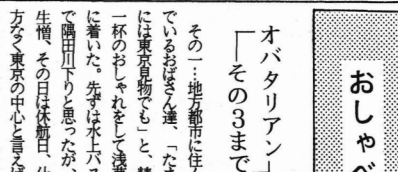 おしゃべ
オバタリアン
―その3まで
その一…地方都市に住ん
でいるおばさん達、「たま
には東京見物でも」と、精
一杯のおしゃれをして浅草
に着いた。先ずは水上バス
で隅田川下りと思ったが、
生憎、その日は休航日、仕
方なく東京の中心と言えば